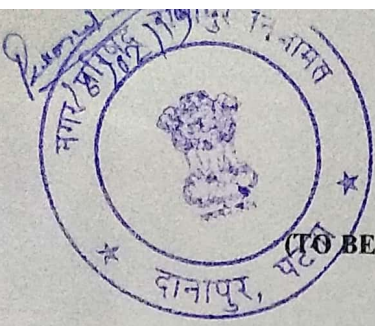 नगर परिषद् दानापुर निजामत
दानापुर, पटना
(TO BE